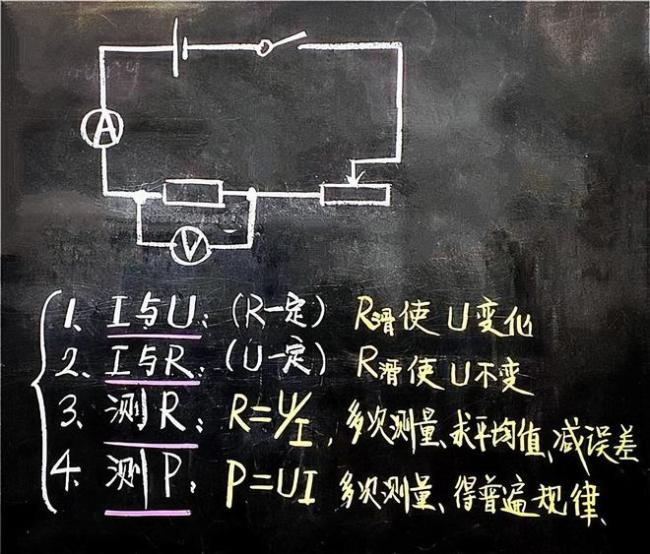 A
V
1、I与U：(R一定) R滑使U变化
2、I与R：(U一定) R滑使U不变
3、测R：R=U/I，多次测量、求平均值、减误差
4、测P：P=UI 多次测量、得普遍规律、